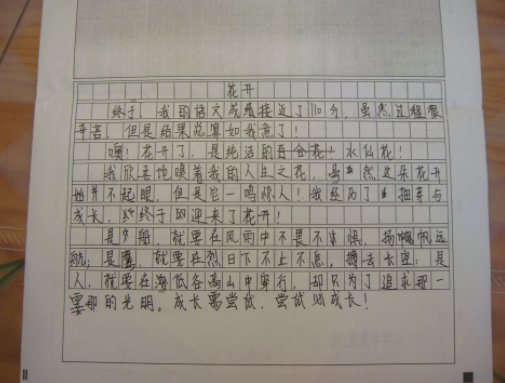 花开
终于，我的语文成绩接近了110分，虽然过程很
辛苦，但是结果总算如我意了！
噢！花开了，是纯洁的百合花！水仙花！
我欣喜地嗅着我的人生之花，虽然这朵花开
始并不起眼，但是它一鸣惊人！我经历了抽芽与
成长，终于的迎来了花开！
是船，就要在风雨中不畏不惧，扬帆远
航；是鹰，就要在烈日下不上不息，搏击长空；是
人，就要在海低谷高山中穿行，却只为了追求那一
霎那的光明。成长需尝试，尝试必成长！